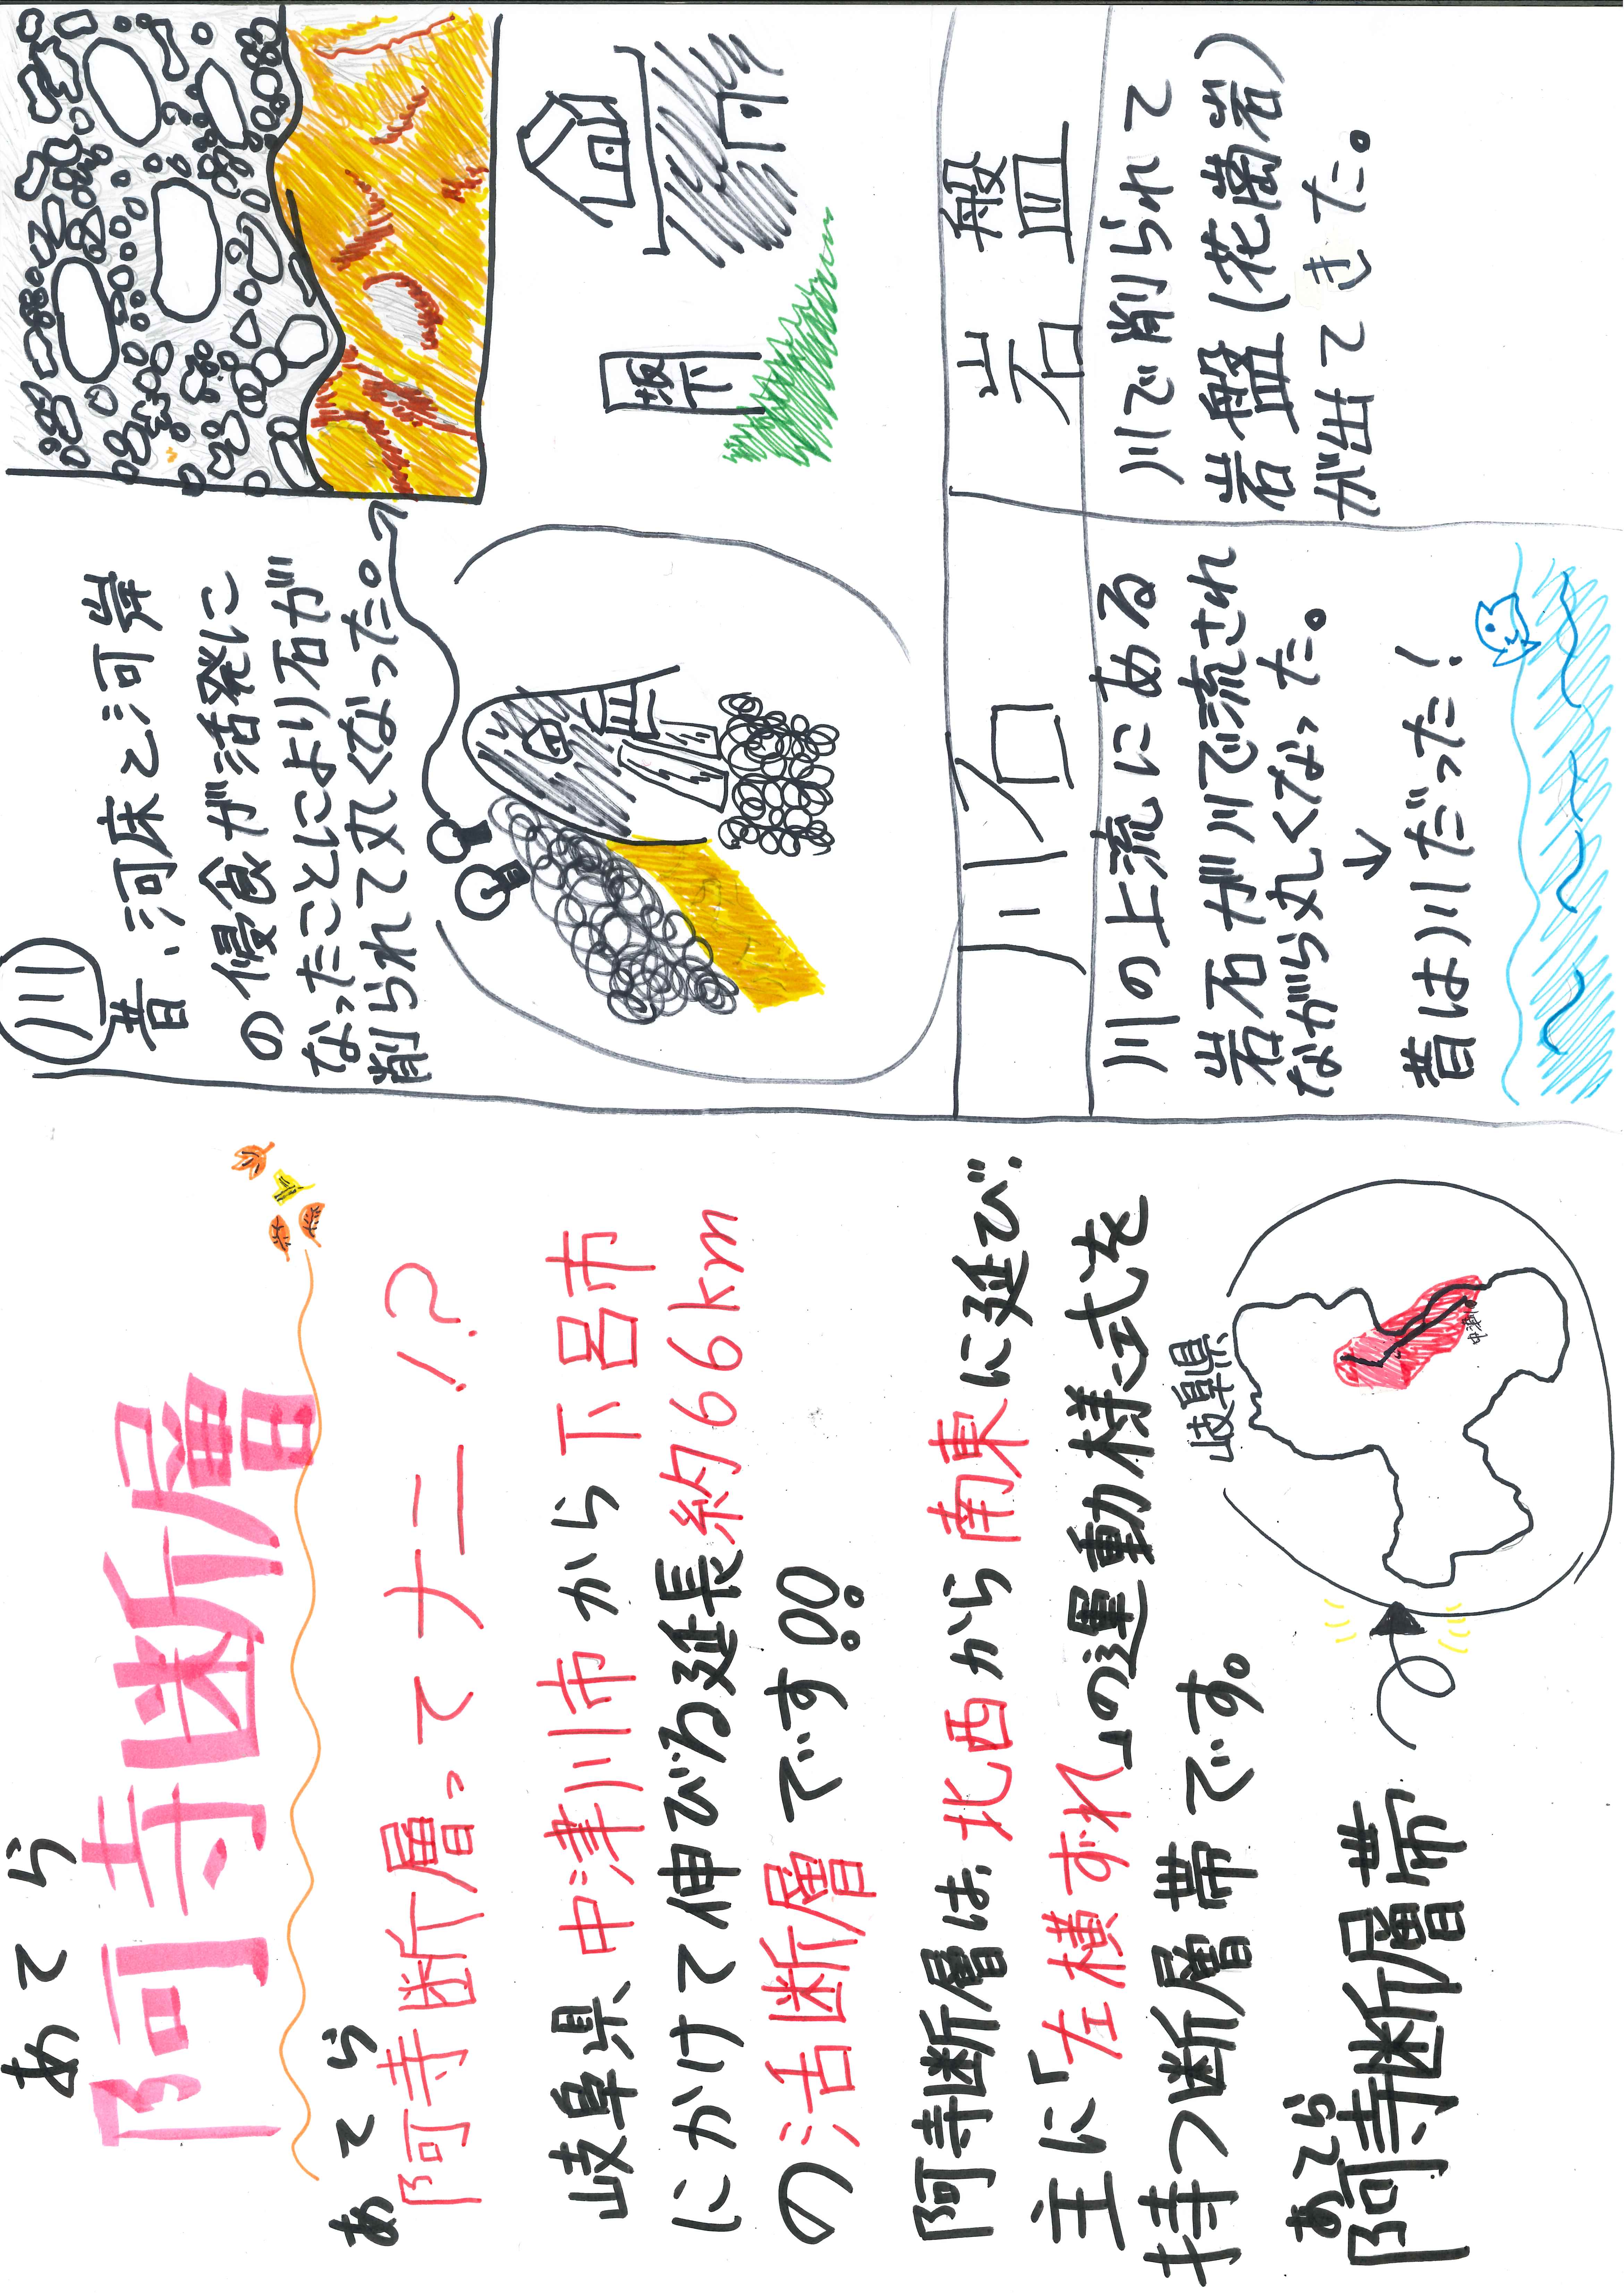 あてら
阿寺断層
あてら
阿寺断層って ナニ!?
岐阜県 中津川市 から 下呂市
にかけて伸びる延長約66km
の活断層 です!!
阿寺断層は、北西から南東に延び、
主に「左横ずれ」の運動様式を
持つ断層帯です。
あてら
阿寺断層帯
岐阜県
川
昔、河床と河岸
の侵食が活発に
なったことにより石が
削られて丸くなった。
坂下
川石
川の上流にある
岩石が川で流され
ながら丸くなった。
↓
昔は川だった!
岩盤
川で削られて
岩盤(花崗岩)
が出てきた。